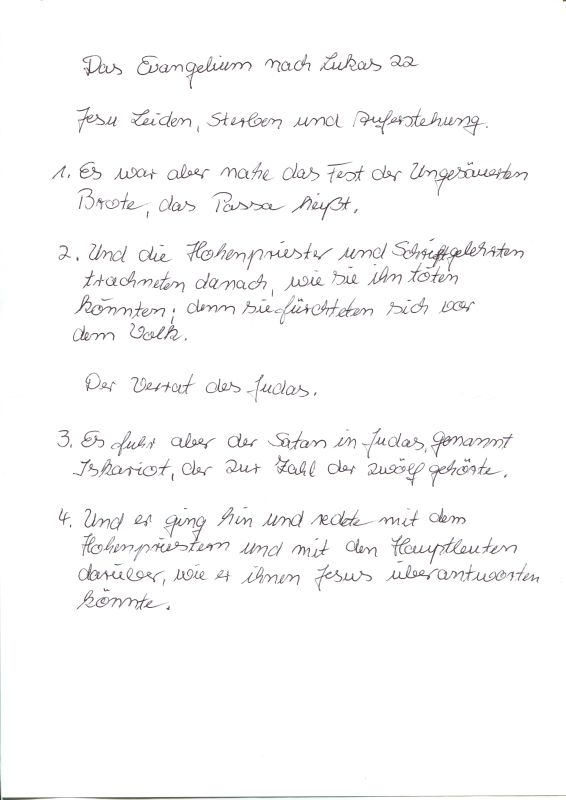 Das Evangelium nach Lukas 22
Jesu Leiden, Sterben und Auferstehung.
1. Es war aber nahe das Fest der Ungesäuerten
Brote, das Passa heißt.
2. Und die Hohenpriester und Schriftgelehrten
trachneten danach, wie sie ihn töten
könnten; denn sie fürchteten sich vor
dem Volk.
Der Verrat des Judas.
3. Es fuhr aber der Satan in Judas, genannt
Iskariot, der zur Zahl der zwölf gehörte.
4. Und er ging hin und redete mit dem
Hohenpriestern und mit den Hauptleuten
darüber, wie er ihnen Jesus überantworten
könnte.